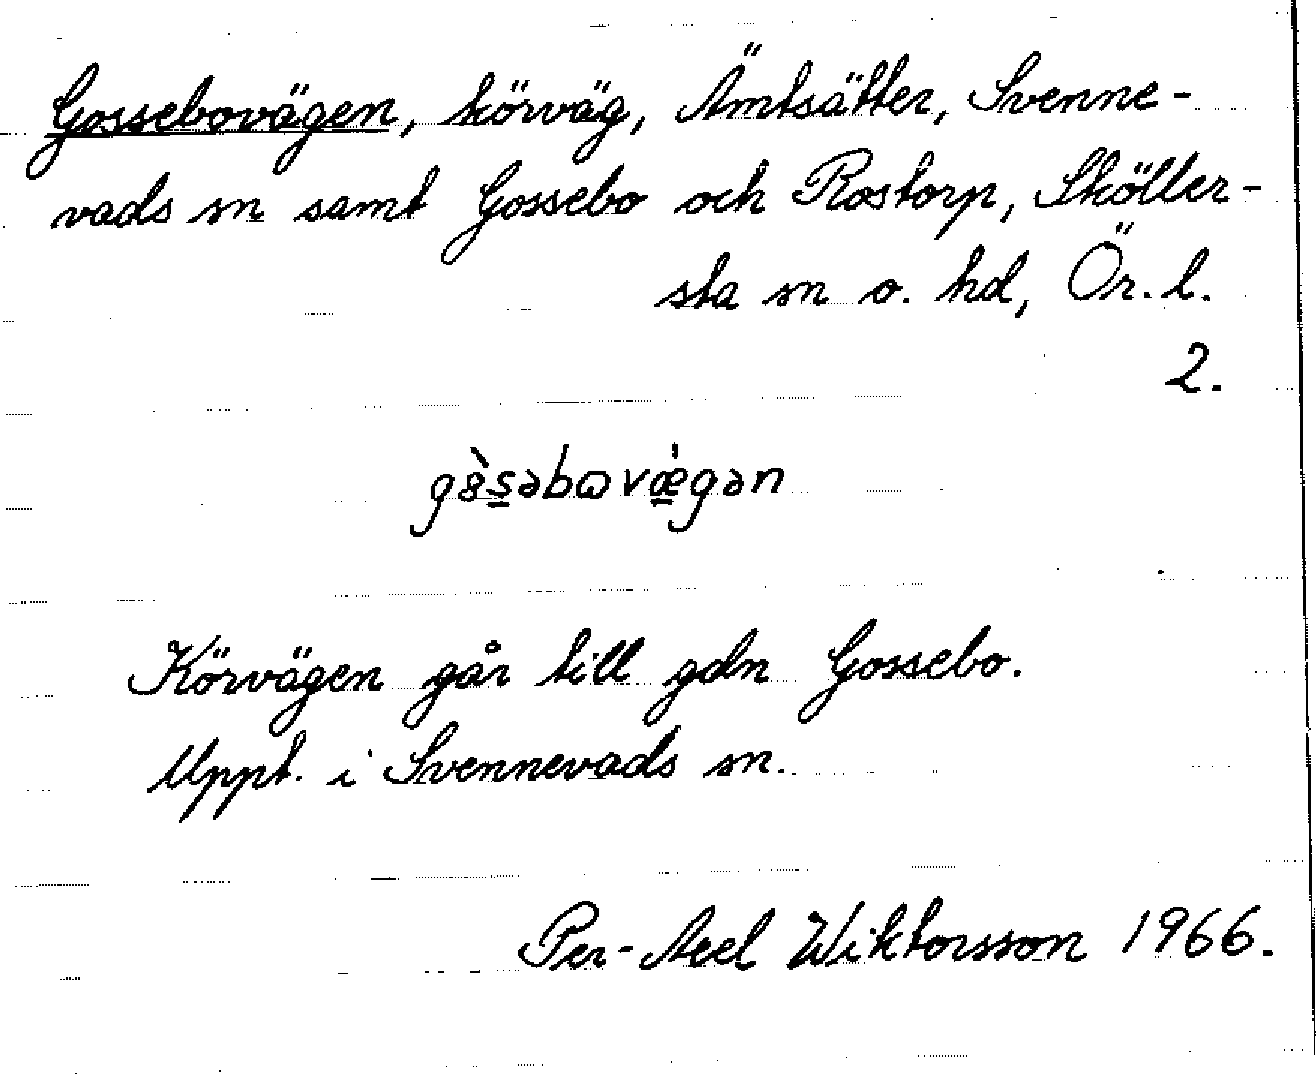 Gossebovägen, körväg, Ämtsätter, Svenne-
vads sn samt Gossebo och Rostorp, Sköller-
sta sn o. hd, Ör. l.
2.
gȣ̀s̲əbɷvæ̲̍gən
Körvägen går till gdn Gossebo.
Uppt. i Svennevads sn.
Per-Axel Wiktorsson 1966.